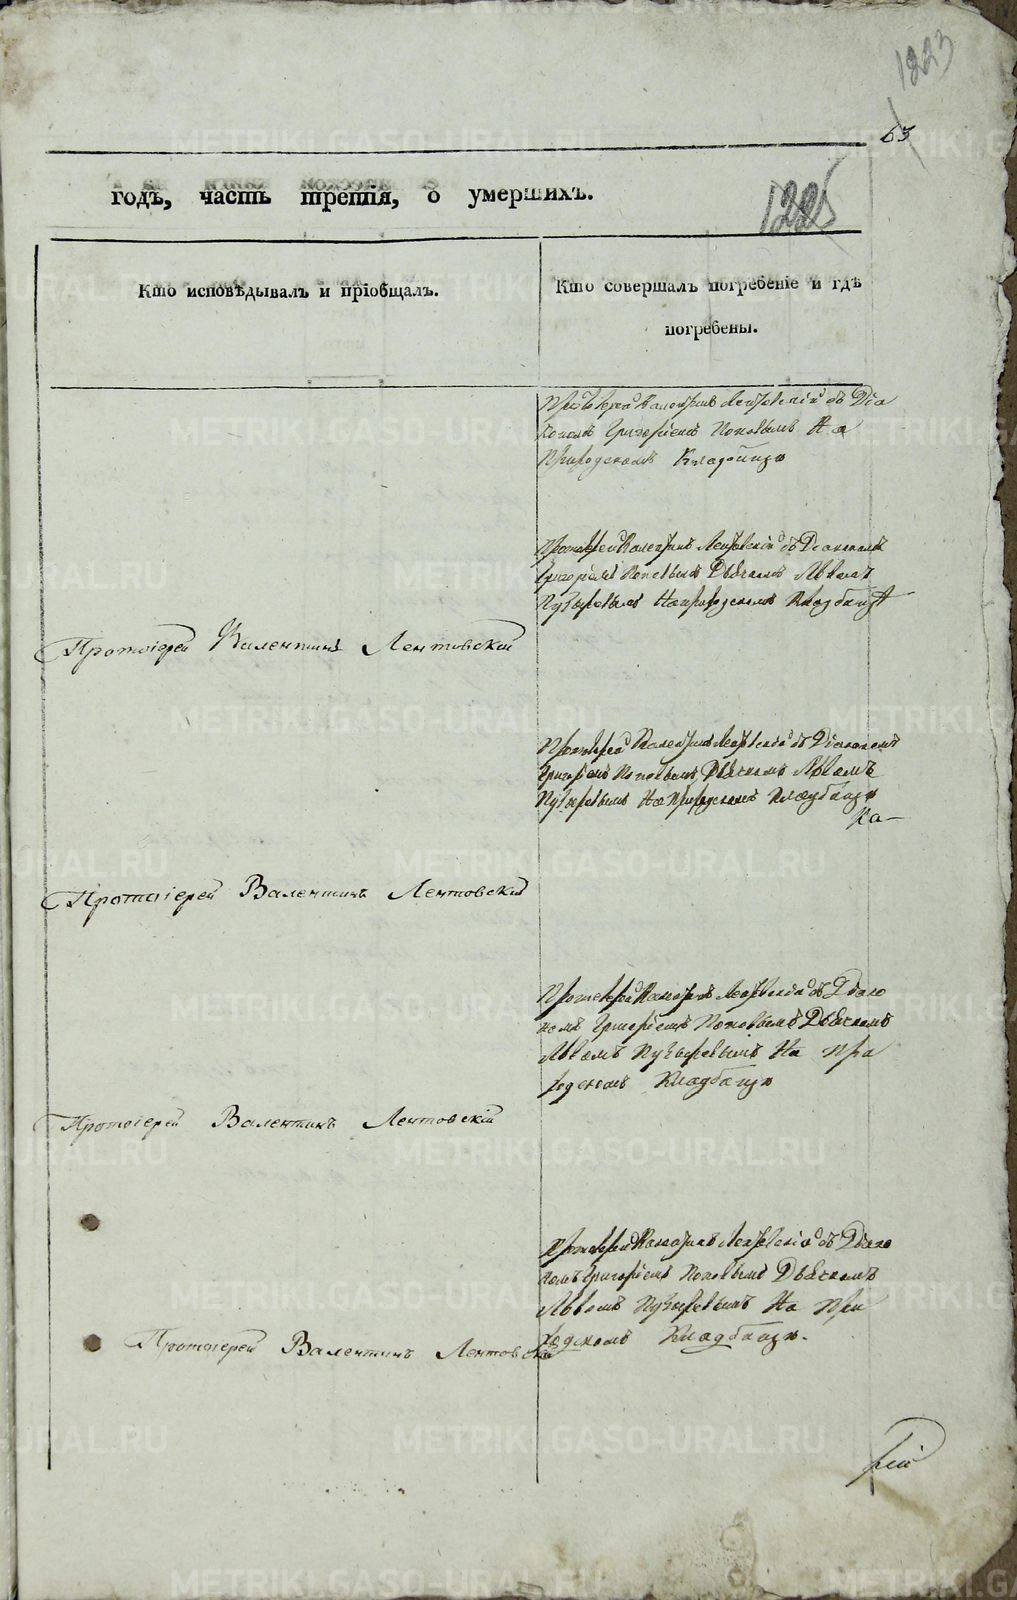 1223
63
1225
годъ, часть третія, о умершихъ.
Кто исповѣдывалъ и пріобщалъ.
Кто совершалъ погребеніе и гдѣ
погребены.
Протоіерей Валентинъ Лентовскій съ Діа
кономъ Григоріемъ Поповымъ На
Пригородскомъ Кладбищѣ
Протоіерей Валентинъ Лентовскій съ Діакономъ
Григоріемъ Поповымъ Дьячкомъ Львомъ
Пузыревымъ На пригородскомъ Кладбищѣ
Протоіерей Валентинъ Лентовскій
Протоіерей Валентинъ Лентовскій съ Діакономъ
Григоріемъ Поповымъ, Дьячкомъ Львомъ
Пузыревымъ На Пригородскомъ Кладбищѣ
Ка-
Протоіерей Валентинъ Лентовскій
Протоіерей Валентинъ Лентовскій съ Діако
номъ Григоріемъ Поповымъ Дьячкомъ
Львомъ Пузыревымъ На При
родскомъ Кладбищѣ
Протоіерей Валентинъ Лентовскій
Протоіерей Валентинъ Лентовскій съ Діако
номъ Григоріемъ Поповымъ Дьячкомъ
Львомъ Пузыревымъ На При
родскомъ Кладбищѣ.
Протоіерей Валентинъ Лентовскій
METRIKI.GASO-URAL.RU